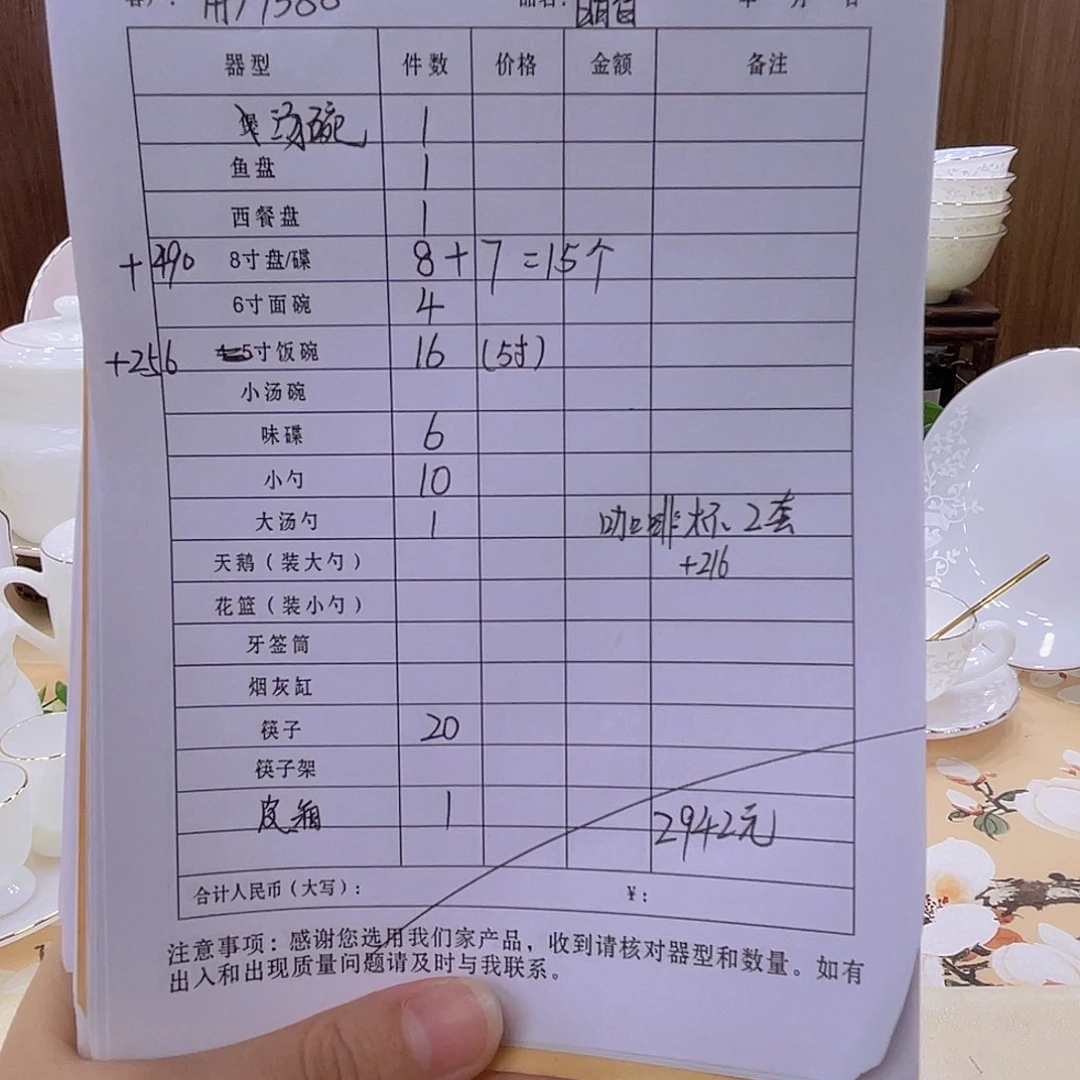 器型 件数 价格 金额 备注
煲汤碗 1
鱼盘 1
西餐盘 1
+490 8寸盘/碟 8+7=15个
6寸面碗 4
+256 5寸饭碗 16 (5寸)
小汤碗
味碟 6
小勺 10
大汤勺 1 咖啡杯、2套
天鹅（装大勺） +216
花篮（装小勺）
牙签筒
烟灰缸
筷子 20
筷子架
皮箱 1 2942元
合计人民币（大写）： ¥：
注意事项：感谢您选用我们家产品，收到请核对器型和数量。如有
出入和出现质量问题请及时与我联系。